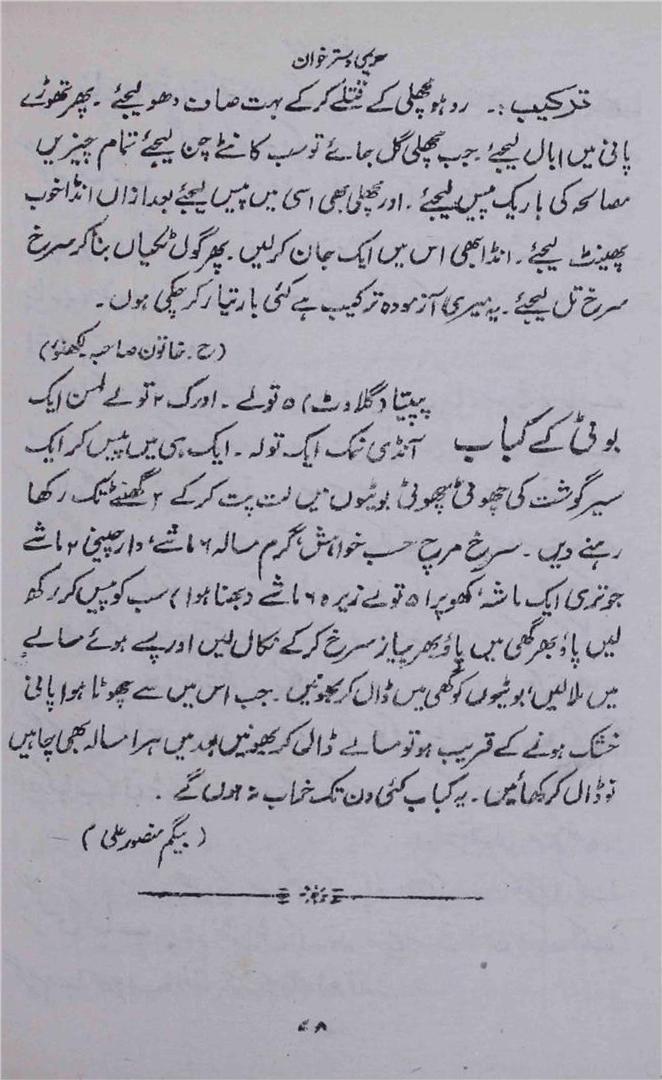 حریمی دسترخوان
ترکیب:۔ روہو مچھلی کے قتلے کرکے بہت صاف دھولیجئے ۔ پھر تھوڑے
پانی میں ابال لیجئے ۔ جب مچھلی گل جائے تو سب کانٹے چن لیجئے تمام چیزیں
مصالحہ کی باریک پیس لیجئے ۔ اور مچھلی بھی اسی میں پیس لیجئے بعد ازاں انڈا خوب
پھینٹ لیجئے ۔ انڈا بھی اس میں ایک جان کرلیں ۔ پھر گول ٹکیاں بنا کر سرخ
سرخ تل لیجئے ۔ یہ میری آزمودہ ترکیب ہے کئی بار تیار کرچکی ہوں ۔
(ح ۔ خاتون صاحبہ لکھنؤ)
پپیتا (گلاوٹ) ۵ تولے ۔ ادرک ۲ تولے لہسن ایک
بوٹی کے کباب آنڈی نمک ایک تولہ ۔ ایک ہی میں پیس کر ایک
سیر گوشت کی چھوٹی چھوٹی بوٹیوں میں لت پت کرکے ۲ گھنٹے تک رکھا
رہنے دیں ۔ سرخ مرچ حسب خواہش، گرم مسالہ ۶ ماشے، دارچینی ۲ ماشے
جوتری ایک ماشہ، کھوپرا ۵ تولے زیرہ ۶ ماشے (بھنا ہوا) سب کو پیس کر رکھ
لیں پاؤ بھر گھی میں پاؤ بھر پیاز سرخ کرکے نکال لیں اور پسے ہوئے مسالے
میں ملالیں، بوٹیوں کو گھی میں ڈال کر بھونیں ۔ جب اس میں سے چھوٹا ہوا پانی
خشک ہونے کے قریب ہو تو مسالے ڈال کر بھونیں بعد میں ہرا مسالہ بھی چاہیں
تو ڈال کر کھائیں ۔ یہ کباب کئی دن تک خراب نہ ہوں گے ۔
(بیگم منصور علی)